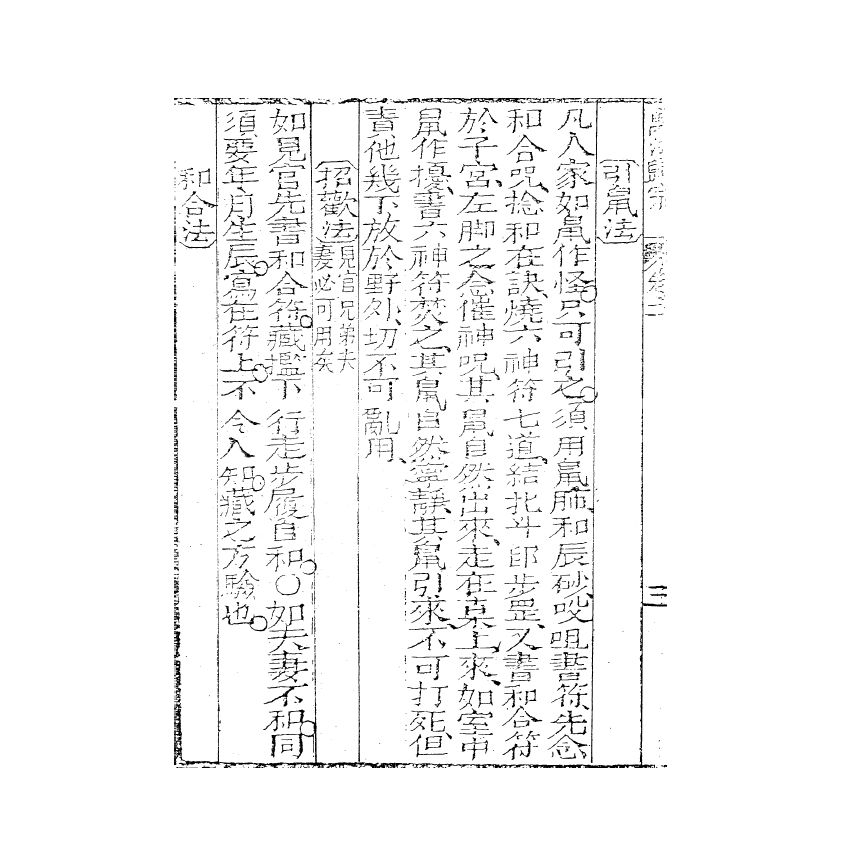 萬法歸宗 卷之二 三
引鼠法
凡人家如鼠作怪只可引之須用鼠肺和辰砂咬咀書符先念
和合咒捻和在訣燒六神符七道結北斗印步罡又書和合符
於子宮左脚之念催神咒其鼠自然出來走在桌上來如室中
鼠作擾書六神符焚之其鼠自然寧靜其鼠引來不可打死但
責他幾下放於野外切不可亂用
招歡法 見官兄弟夫妻必可用矣
如見官先書和合符藏檻下行走步履自和〇如夫妻不和同
須要年月生辰寫在符上不令人知藏之方驗也
和合法